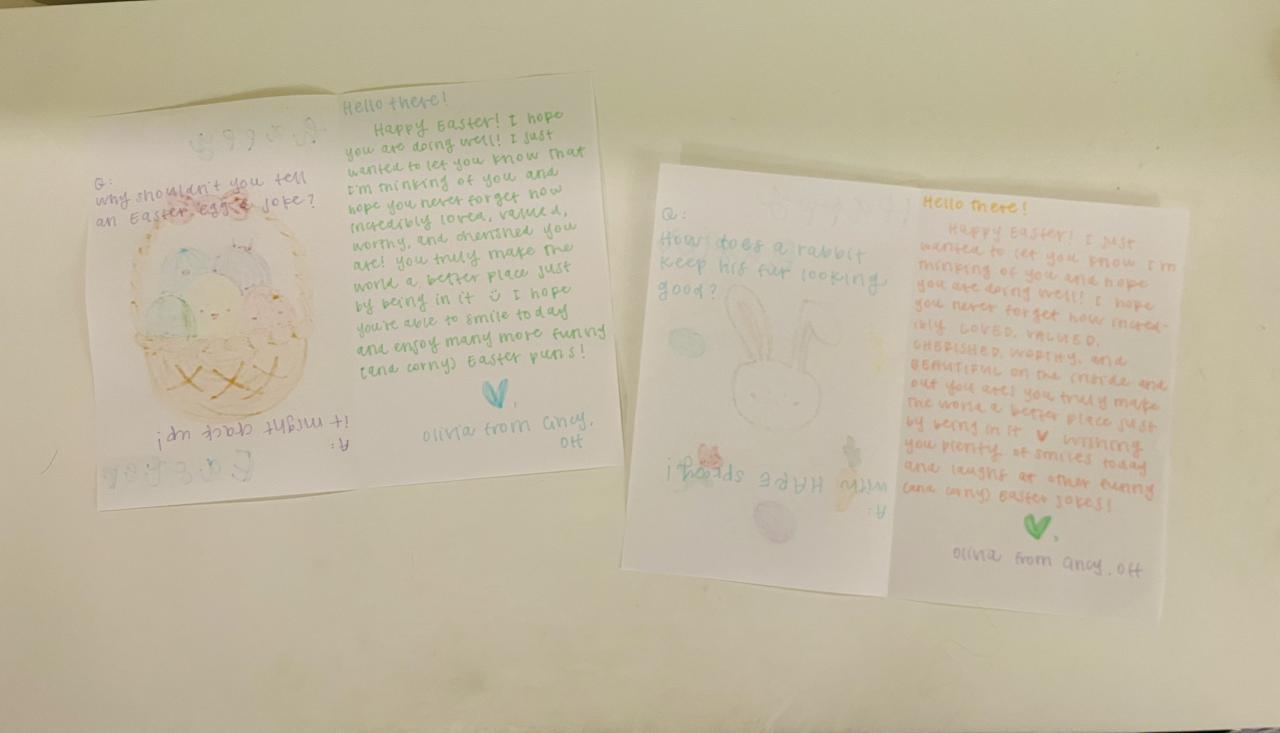 Q:
Why shouldn't you tell
an Easter egg a joke?
A:
it might crack up!
Easter
Hello there!
Happy Easter! I hope
you are doing well! I just
wanted to let you know that
I'm thinking of you and
hope you never forget how
incredibly loved, valued,
worthy, and cherished you
are! you truly make the
world a better place just
by being in it ü I hope
you're able to smile today
and enjoy many more funny
(and corny) Easter puns!
Olivia from Cincy,
OH
Q:
How does a rabbit
keep his fur looking
good?
A:
with HARE spray!
Hello there!
Happy Easter! I just
wanted to let you know I'm
thinking of you and hope
you are doing well! I hope
you never forget how incred-
ibly LOVED, VALUED,
CHERISHED, WORTHY, and
BEAUTIFUL on the inside and
out you are! you truly make
the world a better place just
by being in it ♥ Wishing
you plenty of smiles today
and laughs at other funny
(and corny) Easter jokes!
Olivia from Cincy, OH